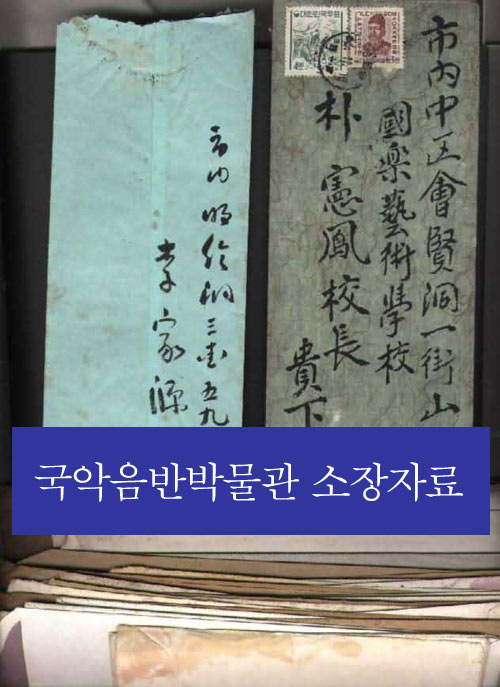 市內中区會賢洞一街山
國樂藝術學校
朴憲鳳校長
貴下
市内明倫洞三街五九
李家源
대한민국우표
국악음반박물관 소장자료